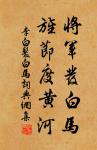 將軍發白馬
旌節度黃河
李白發白馬詞典網集